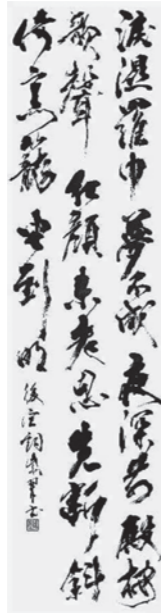 淚濕羅巾夢不成夜深前殿按
歌聲紅顏未老恩先斷斜
倚熏籠坐到明後宮詞書